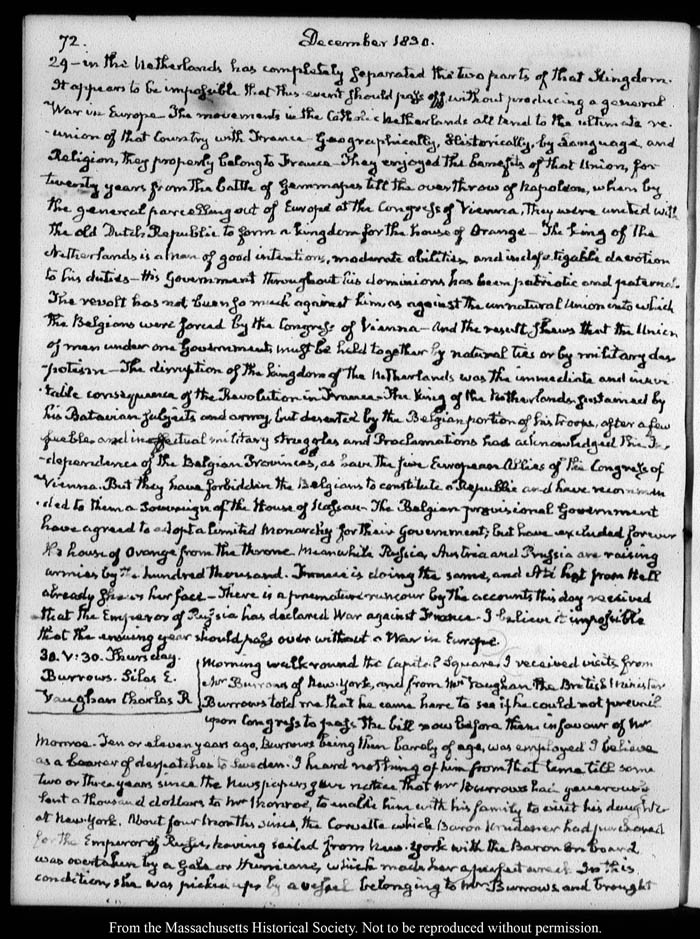 72. December 1830.
29 – in the Netherlands has completely separated the two parts of that Kingdom.
It appears to be impossible that this event should pass off without producing a general
War in Europe – The movements in the Catholic Netherlands all tend to the ultimate re-
-union of that Country with France – Geographically, Historically, by Language, and
Religion, they properly belong to France – They enjoyed the benefits of that Union, for
twenty years from the battle of Gemmapes till the overthrow of Napoleon, when by
the general parcelling out of Europe at the Congress of Vienna, They were united with
the old Dutch Republic to form a kingdom for the house of Orange – The king of the
Netherlands is a man of good intentions, moderate abilities, and indefatigable devotion
to his duties – His Government throughout his dominions has been patriotic and paternal.
The revolt has not been so much against him as against the unnatural Union into which
the Belgians were forced by the Congress of Vienna – And the result shews that the Union
of men under one Government, must be held together by natural ties or by military des-
-potism – The disruption of the kingdom of the Netherlands was the immediate and inevi-
-table consequence of the Revolution in France. The king of the Netherlands sustained by
his Batavian subjects and army, but deserted by the Belgian portion of his troops, after a few
feeble and ineffectual military struggles and Proclamations had acknowledged the In-
-dependence of the Belgian Provinces, as have the five European Allies of the Congress of
Vienna. But they have forbidden the Belgians to constitute a Republic and have recommen-
-ded to them a Sovereign of the House of Nassau – The Belgian provisional Government
have agreed to adopt a limited Monarchy for their Government; but have excluded forever
the house of Orange from the throne. Meanwhile Russia, Austria and Prussia are raising
armies by the hundred thousand. France is doing the same, and Ate hot from Hell
already shews her face – There is a premature rumour by the accounts this day received
that the Emperor of Russia has declared War against France. I believe it impossible
that the ensuing year should pass over without a War in Europe.
30. V:30. Thursday.
Burrows. Silas E.
Vaughan Charles R
Morning walk round the Capitol Square. I received visits from
Mr Burrows of New-York, and from Mr Vaughan the British Minister
Burrows told me that he came here to see if he could not prevail
upon Congress to pass the bill now before them in favour of Mr
Monroe. Ten or eleven years ago, Burrows being then barely of age, was employed I believe
as a bearer of despatches to Sweden. I heard nothing of him from that time till some
two or three years since the Newspapers gave notice that Mr Burrows had generously
lent a thousand dollars to Mr Monroe, to enable him with his family to visit his daughter
at New York. About four months since, the Corvette which Baron Krudener had purchased
for the Emperor of Russia, having sailed from New-York with the Baron on board
was overtaken by a Gale or Hurricane, which made her a perfect wreck. In this
condition, she was picked up by a vessel belonging to Mr Burrows and brought
From the Massachusetts Historical Society. Not to be reproduced without permission.